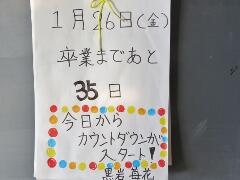 1月26日(金)
卒業まであと
35日
今日から
カウントダウンが
スタート!
黒岩 苺花